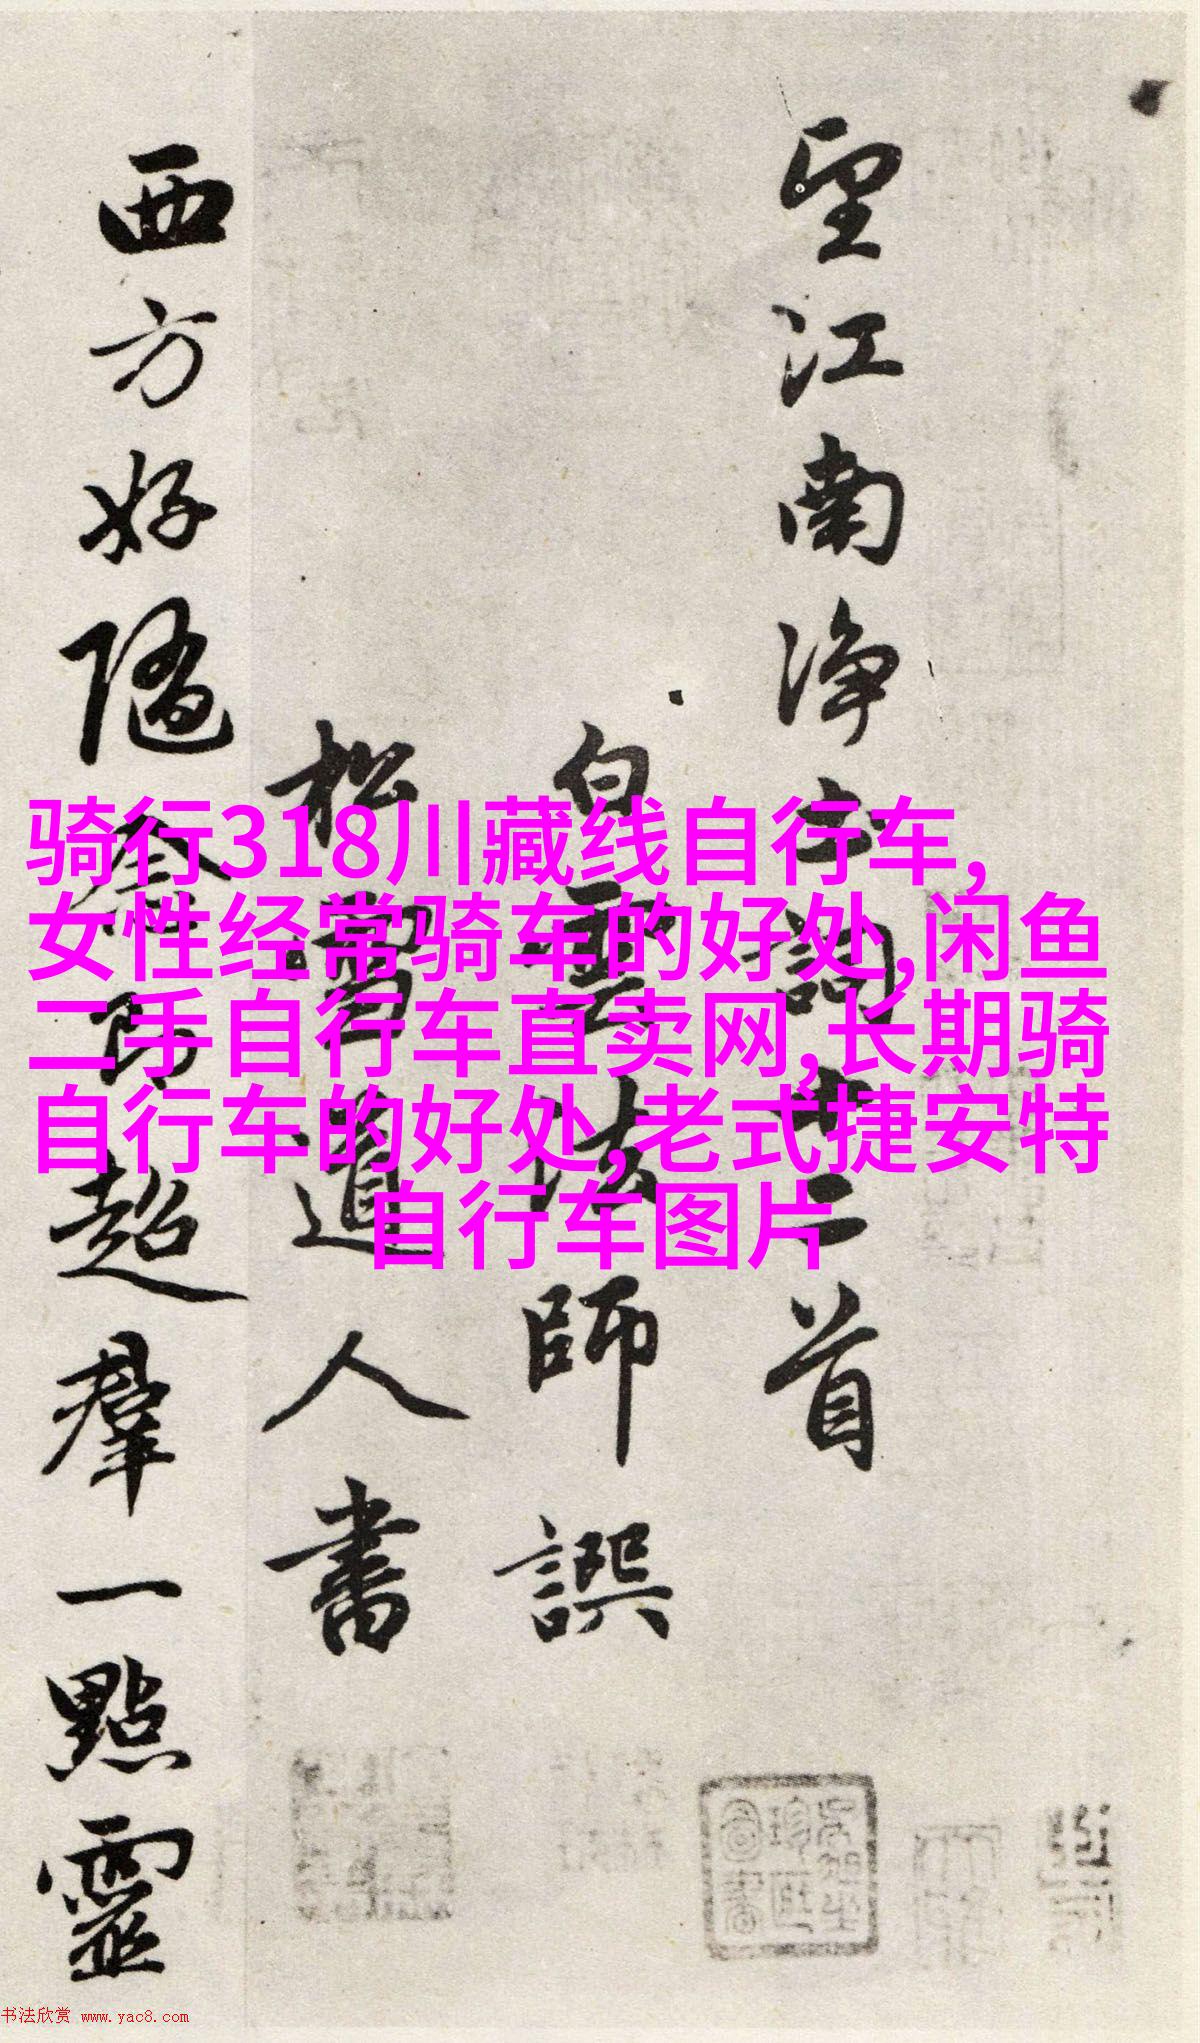 望江南净土詞十二首
白雲法師譔
松雪道人書
西方好隨念即超羣一點靈
骑行318川藏线自行车,
女性经常骑车的好处,闲鱼
二手自行车直卖网,长期骑
自行车的好处,老式捷安特
自行车图片
书法欣赏 www.yac8.com